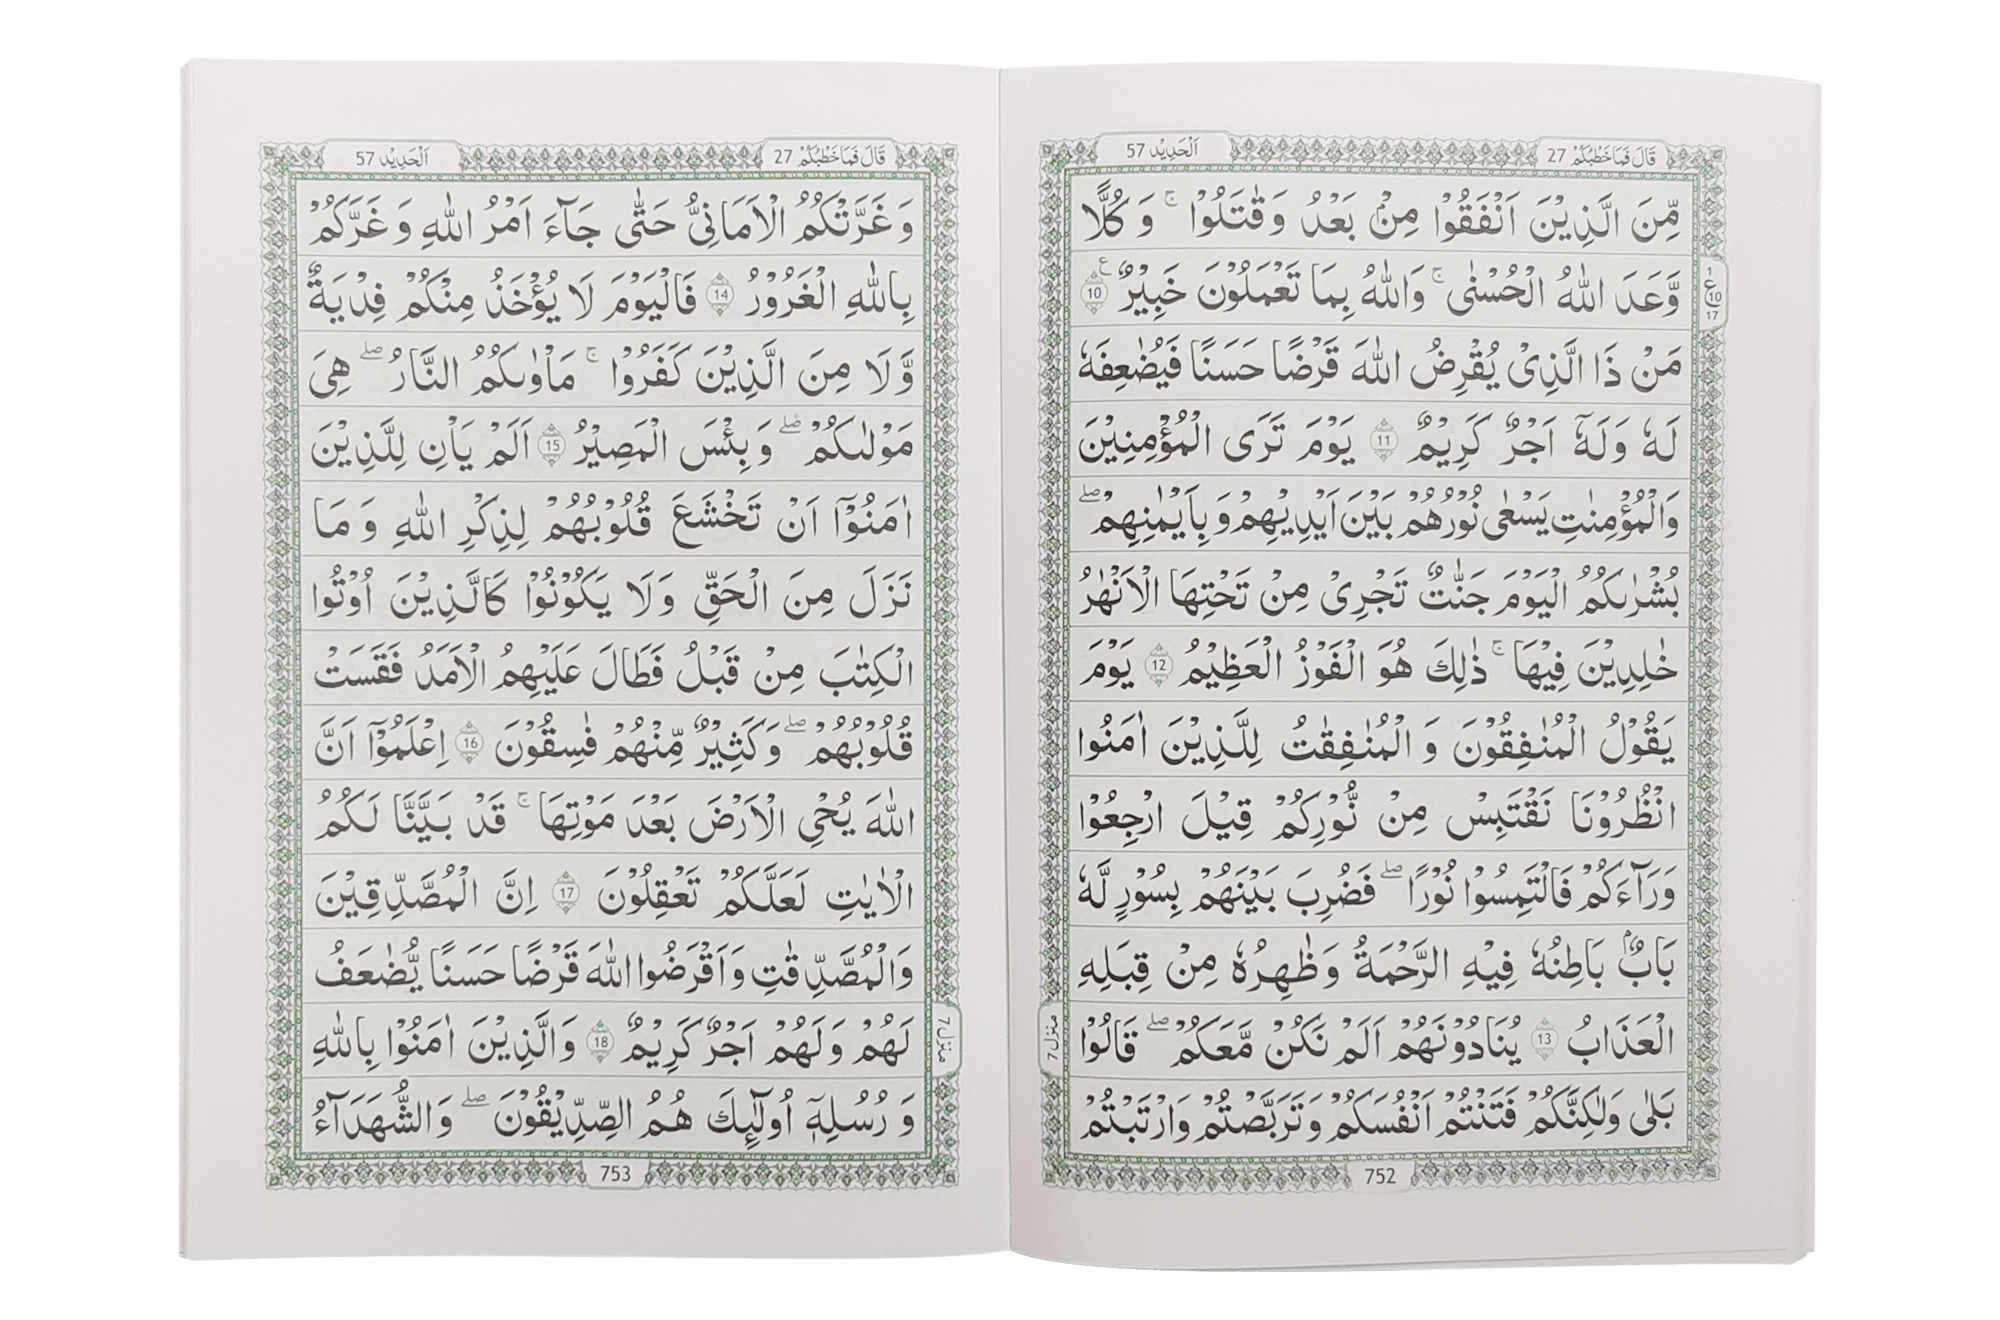 قَالَ فَمَا خَطْبُكُمْ 27
اَلْحَدِيْد 57
مِّنَ الَّذِيْنَ اَنْفَقُوْا مِنْۢ بَعْدُ وَقٰتَلُوْا ۚ وَ كُلًّا
وَّعَدَ اللّٰهُ الْحُسْنٰى ۚ وَاللّٰهُ بِمَا تَعْمَلُوْنَ خَبِيْرٌ ۧ 10
1
ع
10
17
مَنْ ذَا الَّذِىْ يُقْرِضُ اللّٰهَ قَرْضًا حَسَنًا فَيُضٰعِفَهٗ
لَهٗ وَلَهٗۤ اَجْرٌ كَرِيْمٌ 11 يَوْمَ تَرَى الْمُؤْمِنِيْنَ
وَالْمُؤْمِنٰتِ يَسْعٰى نُوْرُهُمْ بَيْنَ اَيْدِيْهِمْ وَ بِاَيْمٰنِهِمْ ۖ
بُشْرٰىكُمُ الْيَوْمَ جَنّٰتٌ تَجْرِىْ مِنْ تَحْتِهَا الْاَنْهٰرُ
خٰلِدِيْنَ فِيْهَا ۚ ذٰلِكَ هُوَ الْفَوْزُ الْعَظِيْمُ 12 يَوْمَ
يَقُوْلُ الْمُنٰفِقُوْنَ وَ الْمُنٰفِقٰتُ لِلَّذِيْنَ اٰمَنُوا
انْظُرُوْنَا نَقْتَبِسْ مِنْ نُّوْرِكُمْ قِيْلَ ارْجِعُوْا
وَرَآءَكُمْ فَالْتَمِسُوْا نُوْرًا ۖ فَضُرِبَ بَيْنَهُمْ بِسُوْرٍ لَّهٗ
بَابٌۢ بَاطِنُهٗ فِيْهِ الرَّحْمَةُ وَظٰهِرُهٗ مِنْ قِبَلِهِ
الْعَذَابُ 13 يُنَادُوْنَهُمْ اَلَمْ نَكُنْ مَّعَكُمْ ۖ قَالُوْا
بَلٰى وَلٰكِنَّكُمْ فَتَنْتُمْ اَنْفُسَكُمْ وَتَرَبَّصْتُمْ وَارْتَبْتُمْ
منزل 7
752
قَالَ فَمَا خَطْبُكُمْ 27
اَلْحَدِيْد 57
وَ غَرَّتْكُمُ الْاَمَانِىُّ حَتّٰى جَآءَ اَمْرُ اللّٰهِ وَ غَرَّكُمْ
بِاللّٰهِ الْغَرُوْرُ 14 فَالْيَوْمَ لَا يُؤْخَذُ مِنْكُمْ فِدْيَةٌ
وَّلَا مِنَ الَّذِيْنَ كَفَرُوْا ۚ مَاْوٰىكُمُ النَّارُ ۖ هِىَ
مَوْلٰىكُمْ ۖ وَ بِئْسَ الْمَصِيْرُ 15 اَلَمْ يَاْنِ لِلَّذِيْنَ
اٰمَنُوْۤا اَنْ تَخْشَعَ قُلُوْبُهُمْ لِذِكْرِ اللّٰهِ وَ مَا
نَزَلَ مِنَ الْحَقِّ وَلَا يَكُوْنُوْا كَالَّذِيْنَ اُوْتُوا
الْكِتٰبَ مِنْ قَبْلُ فَطَالَ عَلَيْهِمُ الْاَمَدُ فَقَسَتْ
قُلُوْبُهُمْ ۖ وَكَثِيْرٌ مِّنْهُمْ فٰسِقُوْنَ 16 اِعْلَمُوْۤا اَنَّ
اللّٰهَ يُحْىِ الْاَرْضَ بَعْدَ مَوْتِهَا ۚ قَدْ بَيَّنَّا لَكُمُ
الْاٰيٰتِ لَعَلَّكُمْ تَعْقِلُوْنَ 17 اِنَّ الْمُصَّدِّقِيْنَ
وَالْمُصَّدِّقٰتِ وَاَقْرَضُوا اللّٰهَ قَرْضًا حَسَنًا يُّضٰعَفُ
لَهُمْ وَلَهُمْ اَجْرٌ كَرِيْمٌ 18 وَالَّذِيْنَ اٰمَنُوْا بِاللّٰهِ
وَ رُسُلِهٖۤ اُولٰٓئِكَ هُمُ الصِّدِّيْقُوْنَ ۖ وَالشُّهَدَآءُ
منزل 7
753